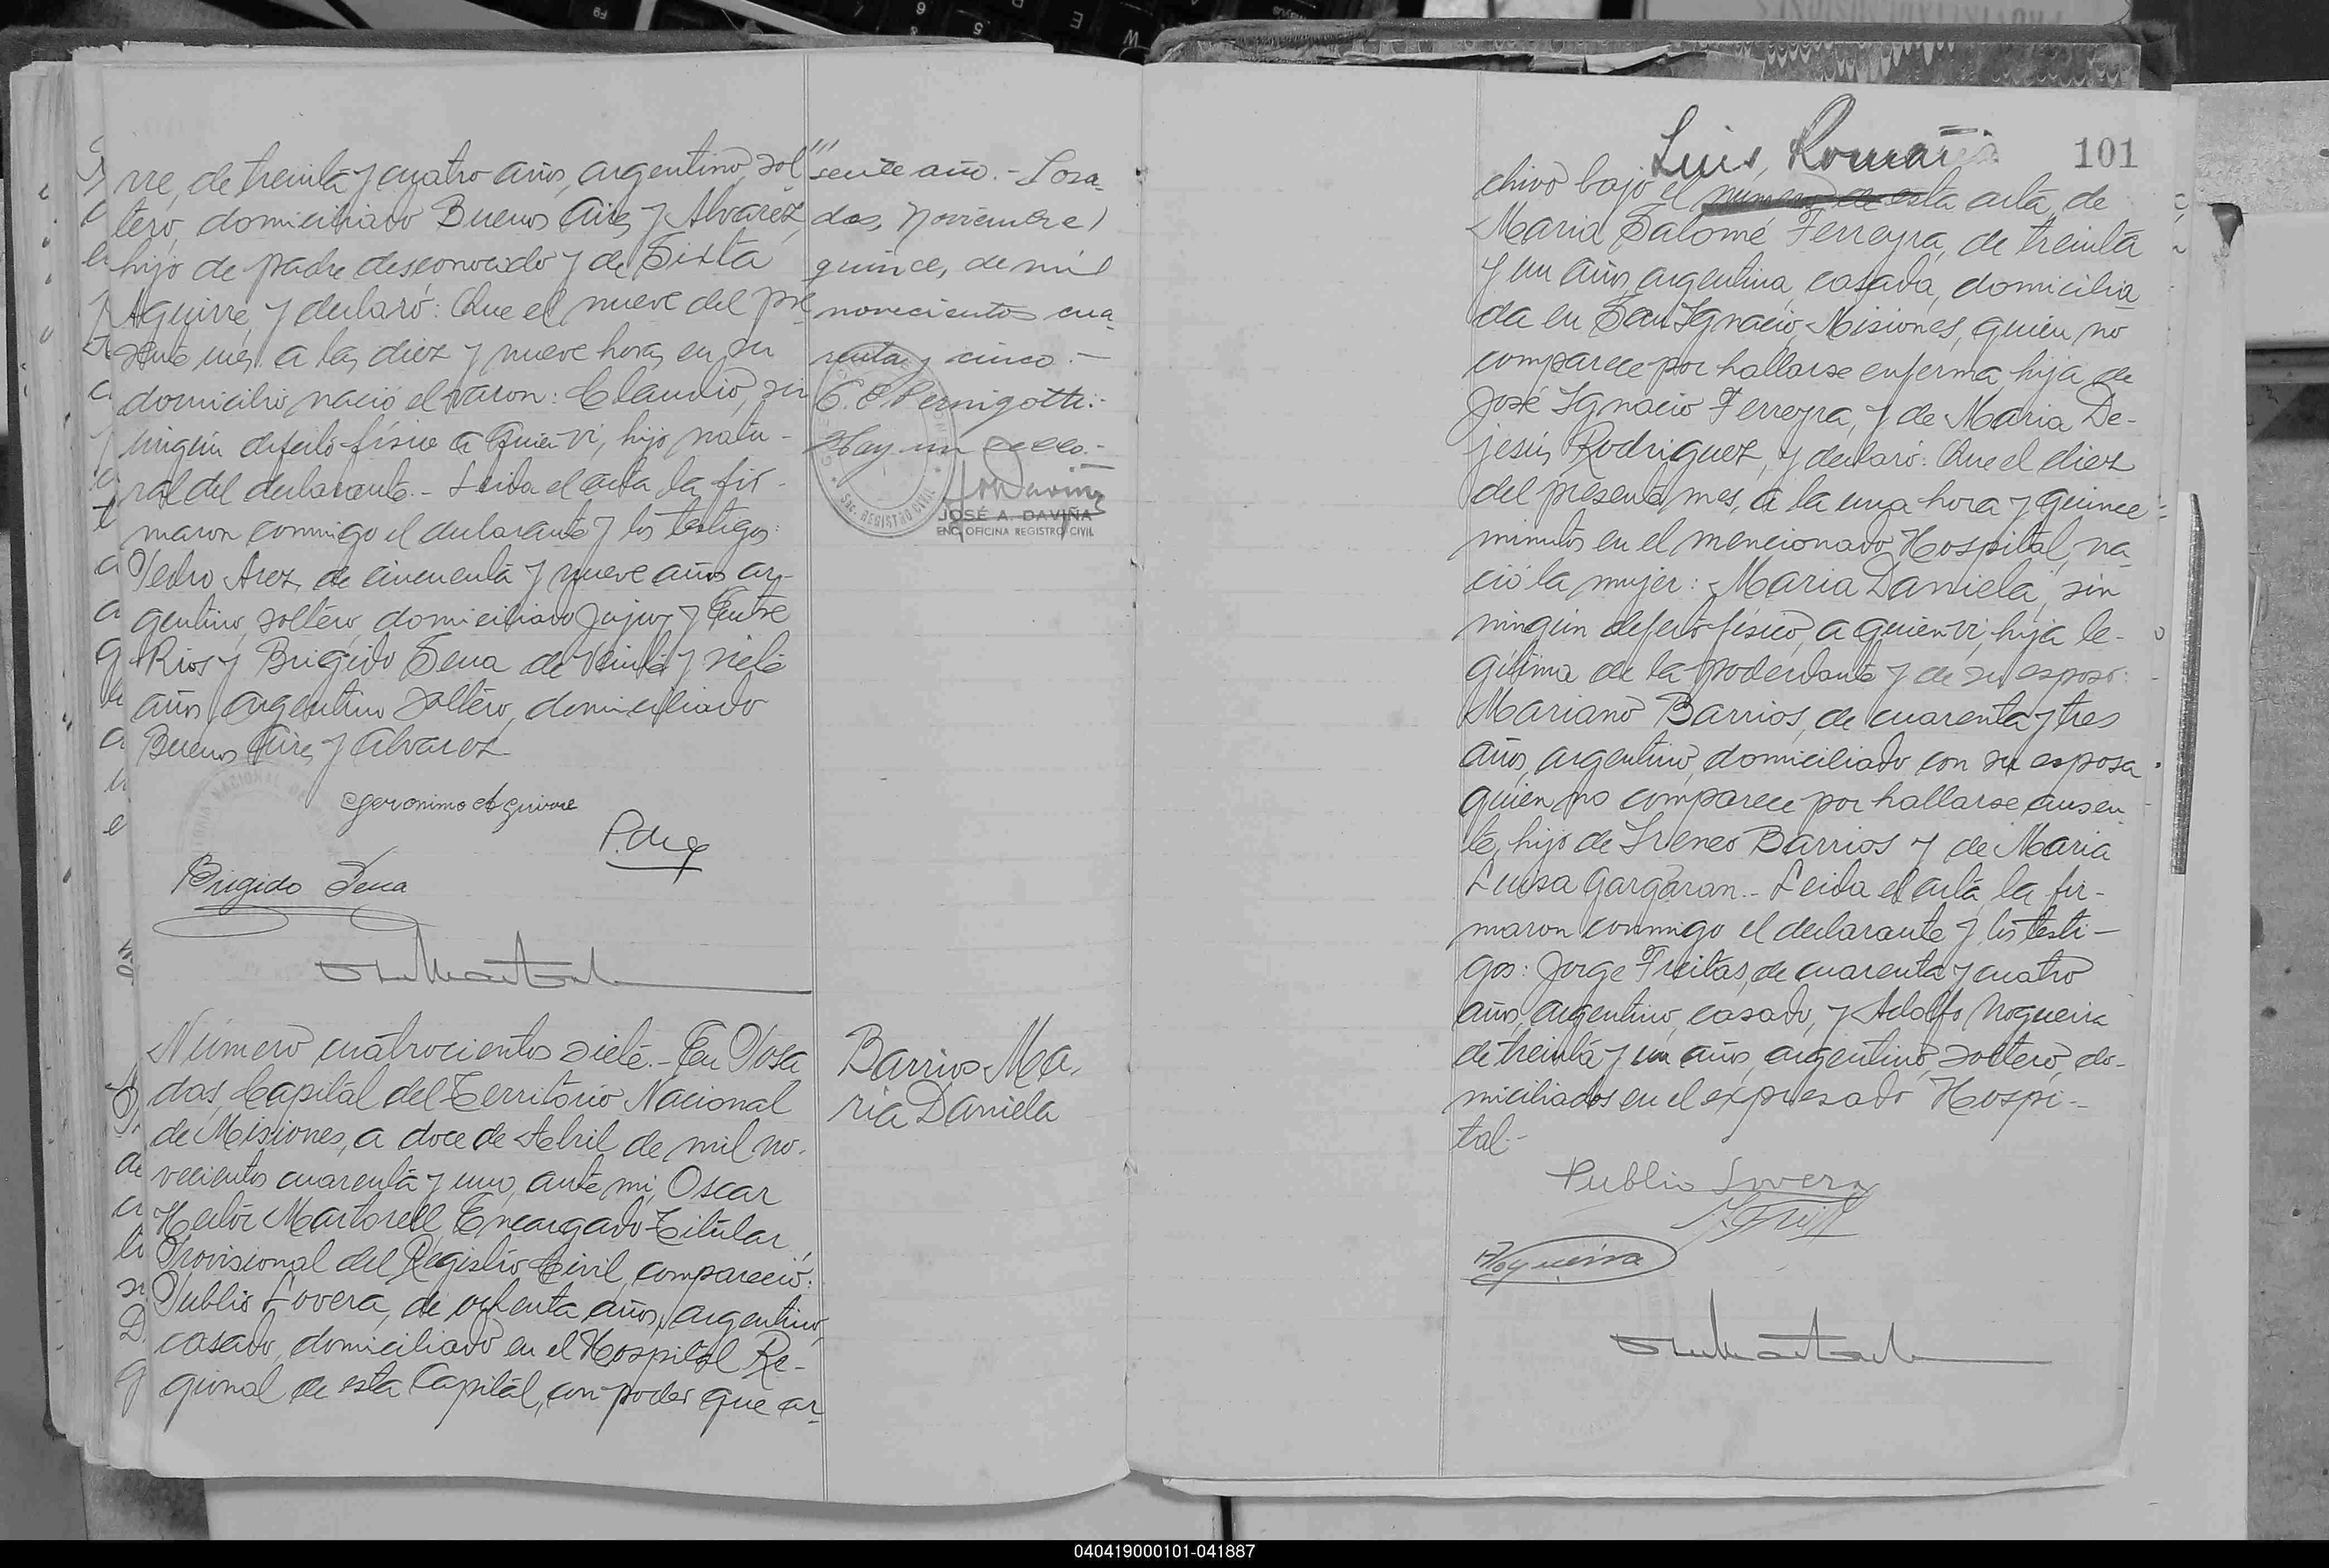 rre, de treinta y cuatro años, argentino, sol
tero, domiciliado Buenos Aires y Alvarez,
hijo de padre desconocido y de Sixta
Aguirre, y declaró: Que el nueve del pre
sente mes a las diez y nueve horas, en su
domicilio nació el varon: Claudio, sin
ningún defecto físico a quien vi, hijo natu-
ral del declarante.- Leida el acta la fir-
maron conmigo el declarante y los testigos:
Pedro Arez, de cincuenta y nueve años ar-
gentino, soltero, domiciliado Jujuy y Entre
Rios y Brigido Sena de veinte y siete
años, argentino soltero, domiciliado
Buenos Aires y Alvarez
Geronimo Aguirre
Brigido Sena
sente año.- Posa-
das, Noviembre
quince, de mil
novecientos cua-
renta y cinco.-
C. E. Pernigotti.-
Hay un sello.-
REGISTRO CIVIL
JOSÉ A. DAVIÑA
ENC. OFICINA REGISTRO CIVIL
Número cuatrocientos siete.- En Posa
das, Capital del Territorio Nacional
de Misiones, a doce de Abril de mil no-
vecientos cuarenta y uno, ante mi, Oscar
Hector Martorell, Encargado Titular
Provisional del Registro Civil, compareció:
Publio Lovera, de ochenta años, argentino,
casado, domiciliado en el Hospital Re-
gional de esta Capital, con poder que ar-
Barrios Ma-
ria Daniela
Luis, Romaña
101
chivo bajo el numero de esta acta, de
Maria Salomé Ferreyra, de treinta
y un años, argentina, casada, domicilia
da en San Ignacio, Misiones, quien no
comparece por hallarse enferma, hija de
José Ignacio Ferreyra, y de Maria De-
jesús Rodriguez, y declaró: Que el diez
del presente mes, a la una hora y quince
minutos en el mencionado Hospital, na-
ció la mujer: Maria Daniela, sin
ningún defecto físico, a quien vi, hija le-
gítima de la poderdante y de su esposo:
Mariano Barrios, de cuarenta y tres
años, argentino, domiciliado con su esposa
quien no comparece por hallarse ausen
te, hijo de Ireneo Barrios y de Maria
Luisa Gargaran.- Leida el acta, la fir-
maron conmigo el declarante y los testi-
gos: Jorge Freitas, de cuarenta y cuatro
años, argentino, casado, y Adolfo Nogueira
de treinta y un años, argentino, soltero, do-
miciliados en el expresado Hospi-
tal.-
Publio Lovera
Nogueira
040419000101-041887